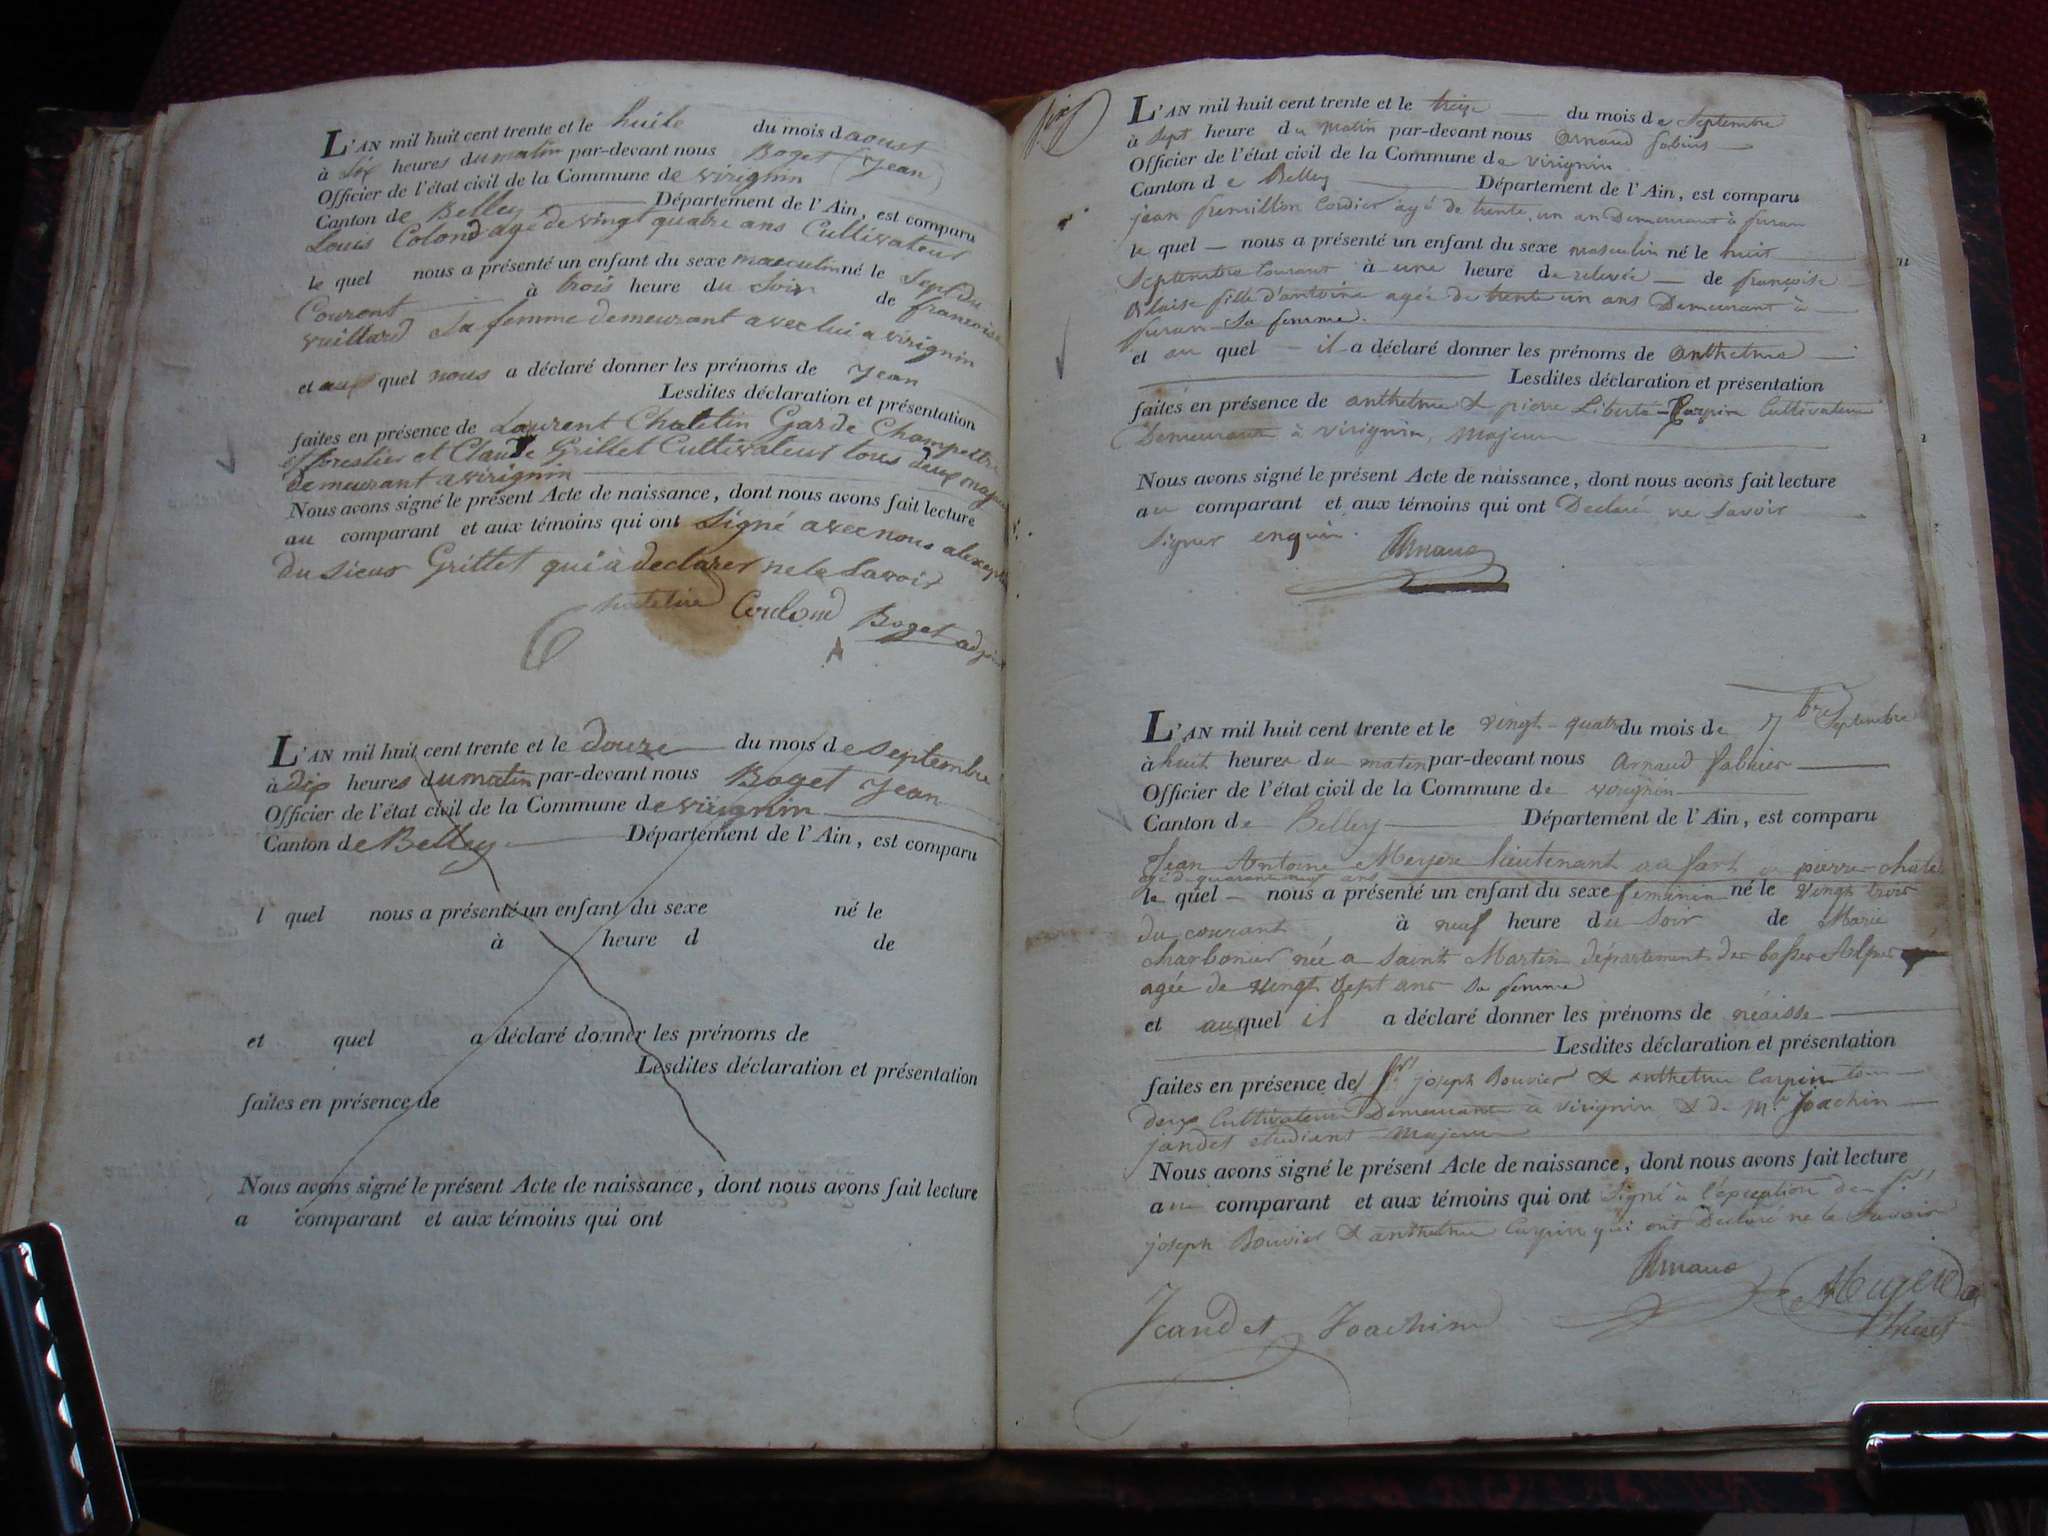 L'AN mil huit cent trente et le huite du mois daoust
à Six heures du matin par-devant nous Boget (Jean)
Officier de l'état civil de la Commune de virignin
Canton de Belley Département de l'Ain, est comparu
Louis Colond agé de vingt quatre ans Cultivateur
le quel nous a présenté un enfant du sexe masculin né le Sept du
Courent à trois heure du Soir de francoise
vuillard Sa femme demeurant avec lui a virignin
et au quel nous a déclaré donner les prénoms de Jean
Lesdites déclaration et présentation
faites en présence de Laurent Chatelin Garde Champetre
et forestier et Claude Grillet Cultivateur tous deux majeur
demeurant a virignin
Nous avons signé le présent Acte de naissance, dont nous avons fait lecture
au comparant et aux témoins qui ont Signé avec nous
du Sieur Grillet qui à declarer ne le Savoir
Coulond Boget adjoint
L'AN mil huit cent trente et le douze du mois de Septembre
à dix heures du matin par-devant nous Boget Jean
Officier de l'état civil de la Commune de virignin
Canton de Belley Département de l'Ain, est comparu
l quel nous a présenté un enfant du sexe né le
à heure d de
et quel a déclaré donner les prénoms de
Lesdites déclaration et présentation
faites en présence de
Nous avons signé le présent Acte de naissance, dont nous avons fait lecture
a comparant et aux témoins qui ont
L'AN mil huit cent trente et le treize du mois de Septembre
à Sept heure du matin par-devant nous Arnaud
Officier de l'état civil de la Commune de virignin
Canton de Belley Département de l'Ain, est comparu
jean Cordier agé de trente un an Demeurant à furan
le quel nous a présenté un enfant du sexe masculin né le huit
Septembre Courant à une heure de relevée de françoise
Blaise fille d'antoine agée de trente un ans Demeurant à
furan Sa femme.
et au quel il a déclaré donner les prénoms de anthelme
Lesdites déclaration et présentation
faites en présence de anthelme & pierre Liberté Carpin Cultivateur
Demeurant à virignin, majeur
Nous avons signé le présent Acte de naissance, dont nous avons fait lecture
au comparant et aux témoins qui ont Declaré ne Savoir
Signer enquis.
Arnaud
L'AN mil huit cent trente et le vingt-quatre du mois de 7bre Septembre
à huit heures du matin par-devant nous Arnaud
Officier de l'état civil de la Commune de virignin
Canton de Belley Département de l'Ain, est comparu
Jean Antoine Meyere lieutenant au fort a pierre chatel
agé de ans
le quel nous a présenté un enfant du sexe féminin né le vingt trois
du courant à neuf heure du soir de Marie
Charbonier née a Saint Martin département des basses Alpes
agée de vingt Sept ans Sa femme
et auquel il a déclaré donner les prénoms de néaisse
Lesdites déclaration et présentation
faites en présence des Srs joseph Bouvier & anthelme Carpin tous
deux Cultivateurs Demeurant à virignin & de Mr Joachin
jandet etudiant majeur
Nous avons signé le présent Acte de naissance, dont nous avons fait lecture
au comparant et aux témoins qui ont Signé à l'exception des Srs
joseph Bouvier & anthelme Carpin qui ont Declaré ne le Savoir
Arnaud
Jeandet Joachim